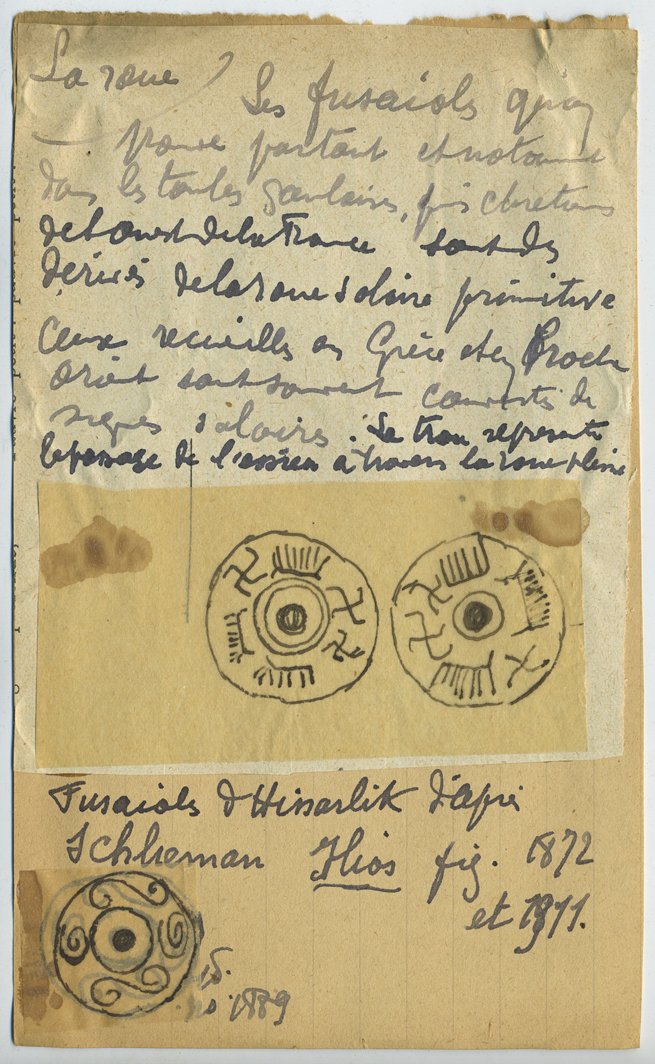 La roue
Les fusaiols qu'on
trouve partout et notamment
dans les tombes gauloises, puis chrétiens
de l'ouest de la France sont des
dérivés de la roue solaire primitive
Ceux recueillis en Grèce et en Proche
orient sont souvent couverts de
signes solaires. Le trou représente
le passage de l'essieu à travers la roue pleine
Fusaiols d'Hissarlik d'après
Schlieman Ilios fig. 1872
et 1911.
id.
no. 1889